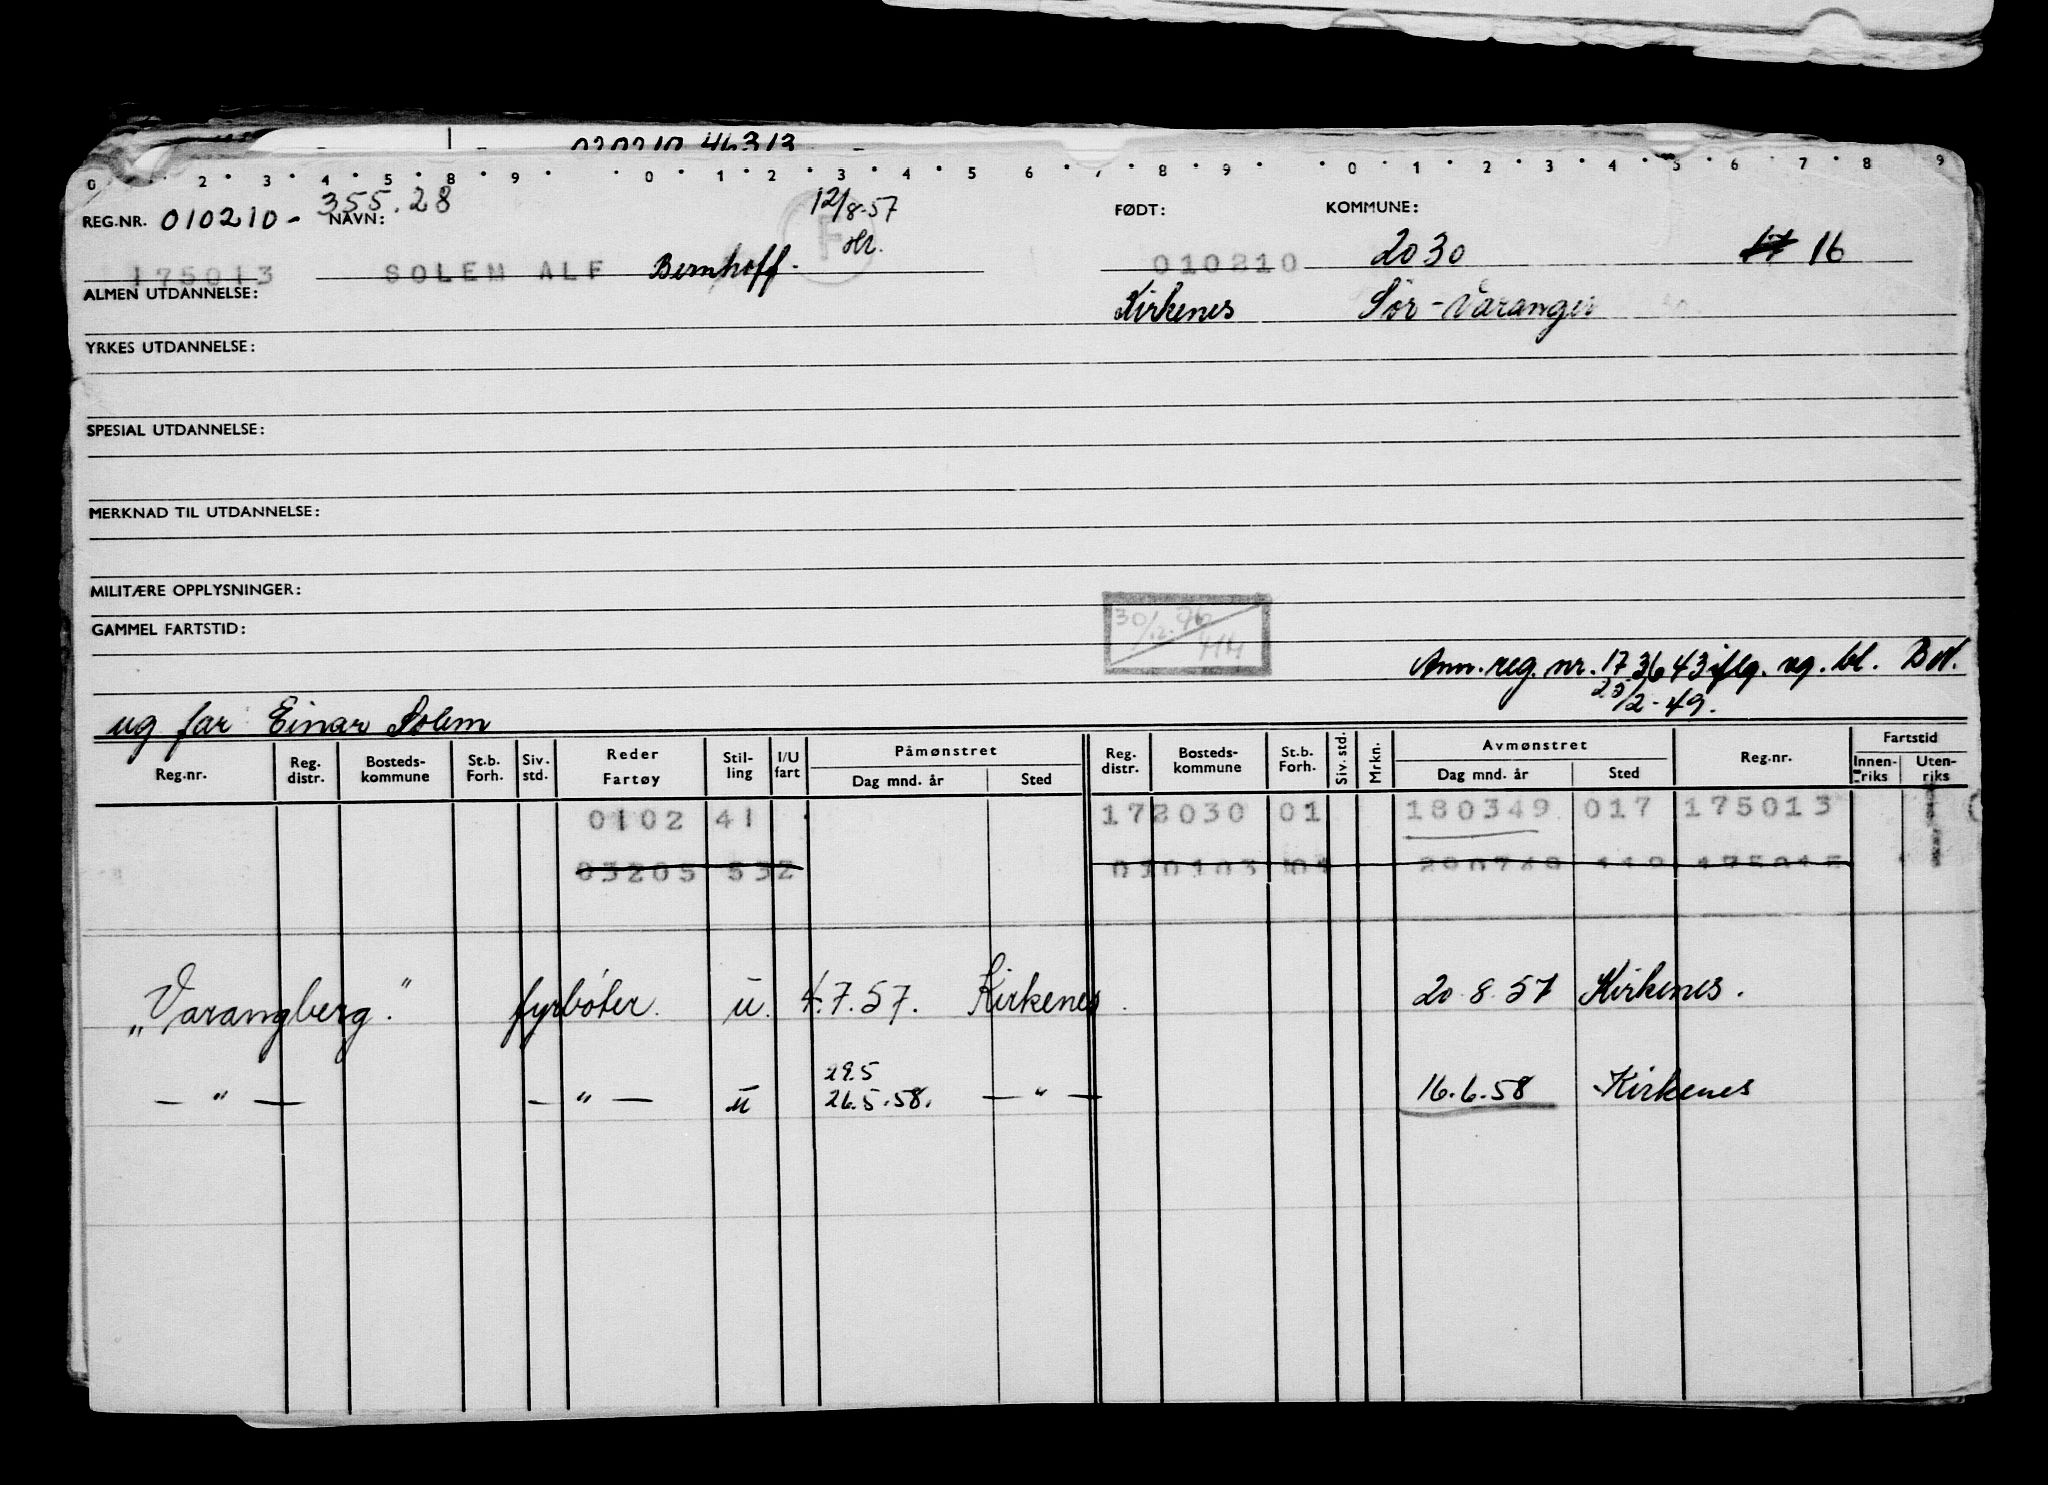 020210 46313
0 2 3 4 5 8 9 0 1 2 3 4 5 6 7 8 9 0 1 2 3 4 5 6 7 8 9
355.28 12/8-57
REG.NR. 010210- NAVN: F FØDT: KOMMUNE:
Hr. 2030 17 16
175013 SOLEM ALF Bernhoff. 010210
ALMEN UTDANNELSE: Kirkenes Sør-Varanger
YRKES UTDANNELSE:
SPESIAL UTDANNELSE:
MERKNAD TIL UTDANNELSE:
MILITÆRE OPPLYSNINGER:
30/12.96 HH
GAMMEL FARTSTID:
Ann. reg. nr. 173643 iflg. ug. bl. BN.
20/2-49.
ug far Einar Solem
Reg.nr. Reg. distr. Bosteds-kommune St.b. Forh. Siv. std. Reder Fartøy Stil-ling I/U fart Påmønstret Dag mnd. år Sted Reg. distr. Bosteds-kommune St.b. Forh. Siv. std. Mrkn. Avmønstret Dag mnd. år Sted Reg.nr. Fartstid Innen-riks Uten-riks
0102 41 172030 01 180349 017 175013
03205 532 010103 01 290749 119 175015
„Varangberg." fyrbøter. u. 4.7.57. Kirkenes. 20.8.57 Kirkenes.
29.5
— " — — " — u 26.5.58. — " — 16.6.58 Kirkenes